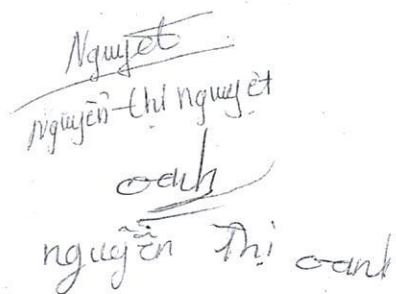 Nguyệt
Nguyễn thị nguyệt
oanh
nguyễn Thị oanh